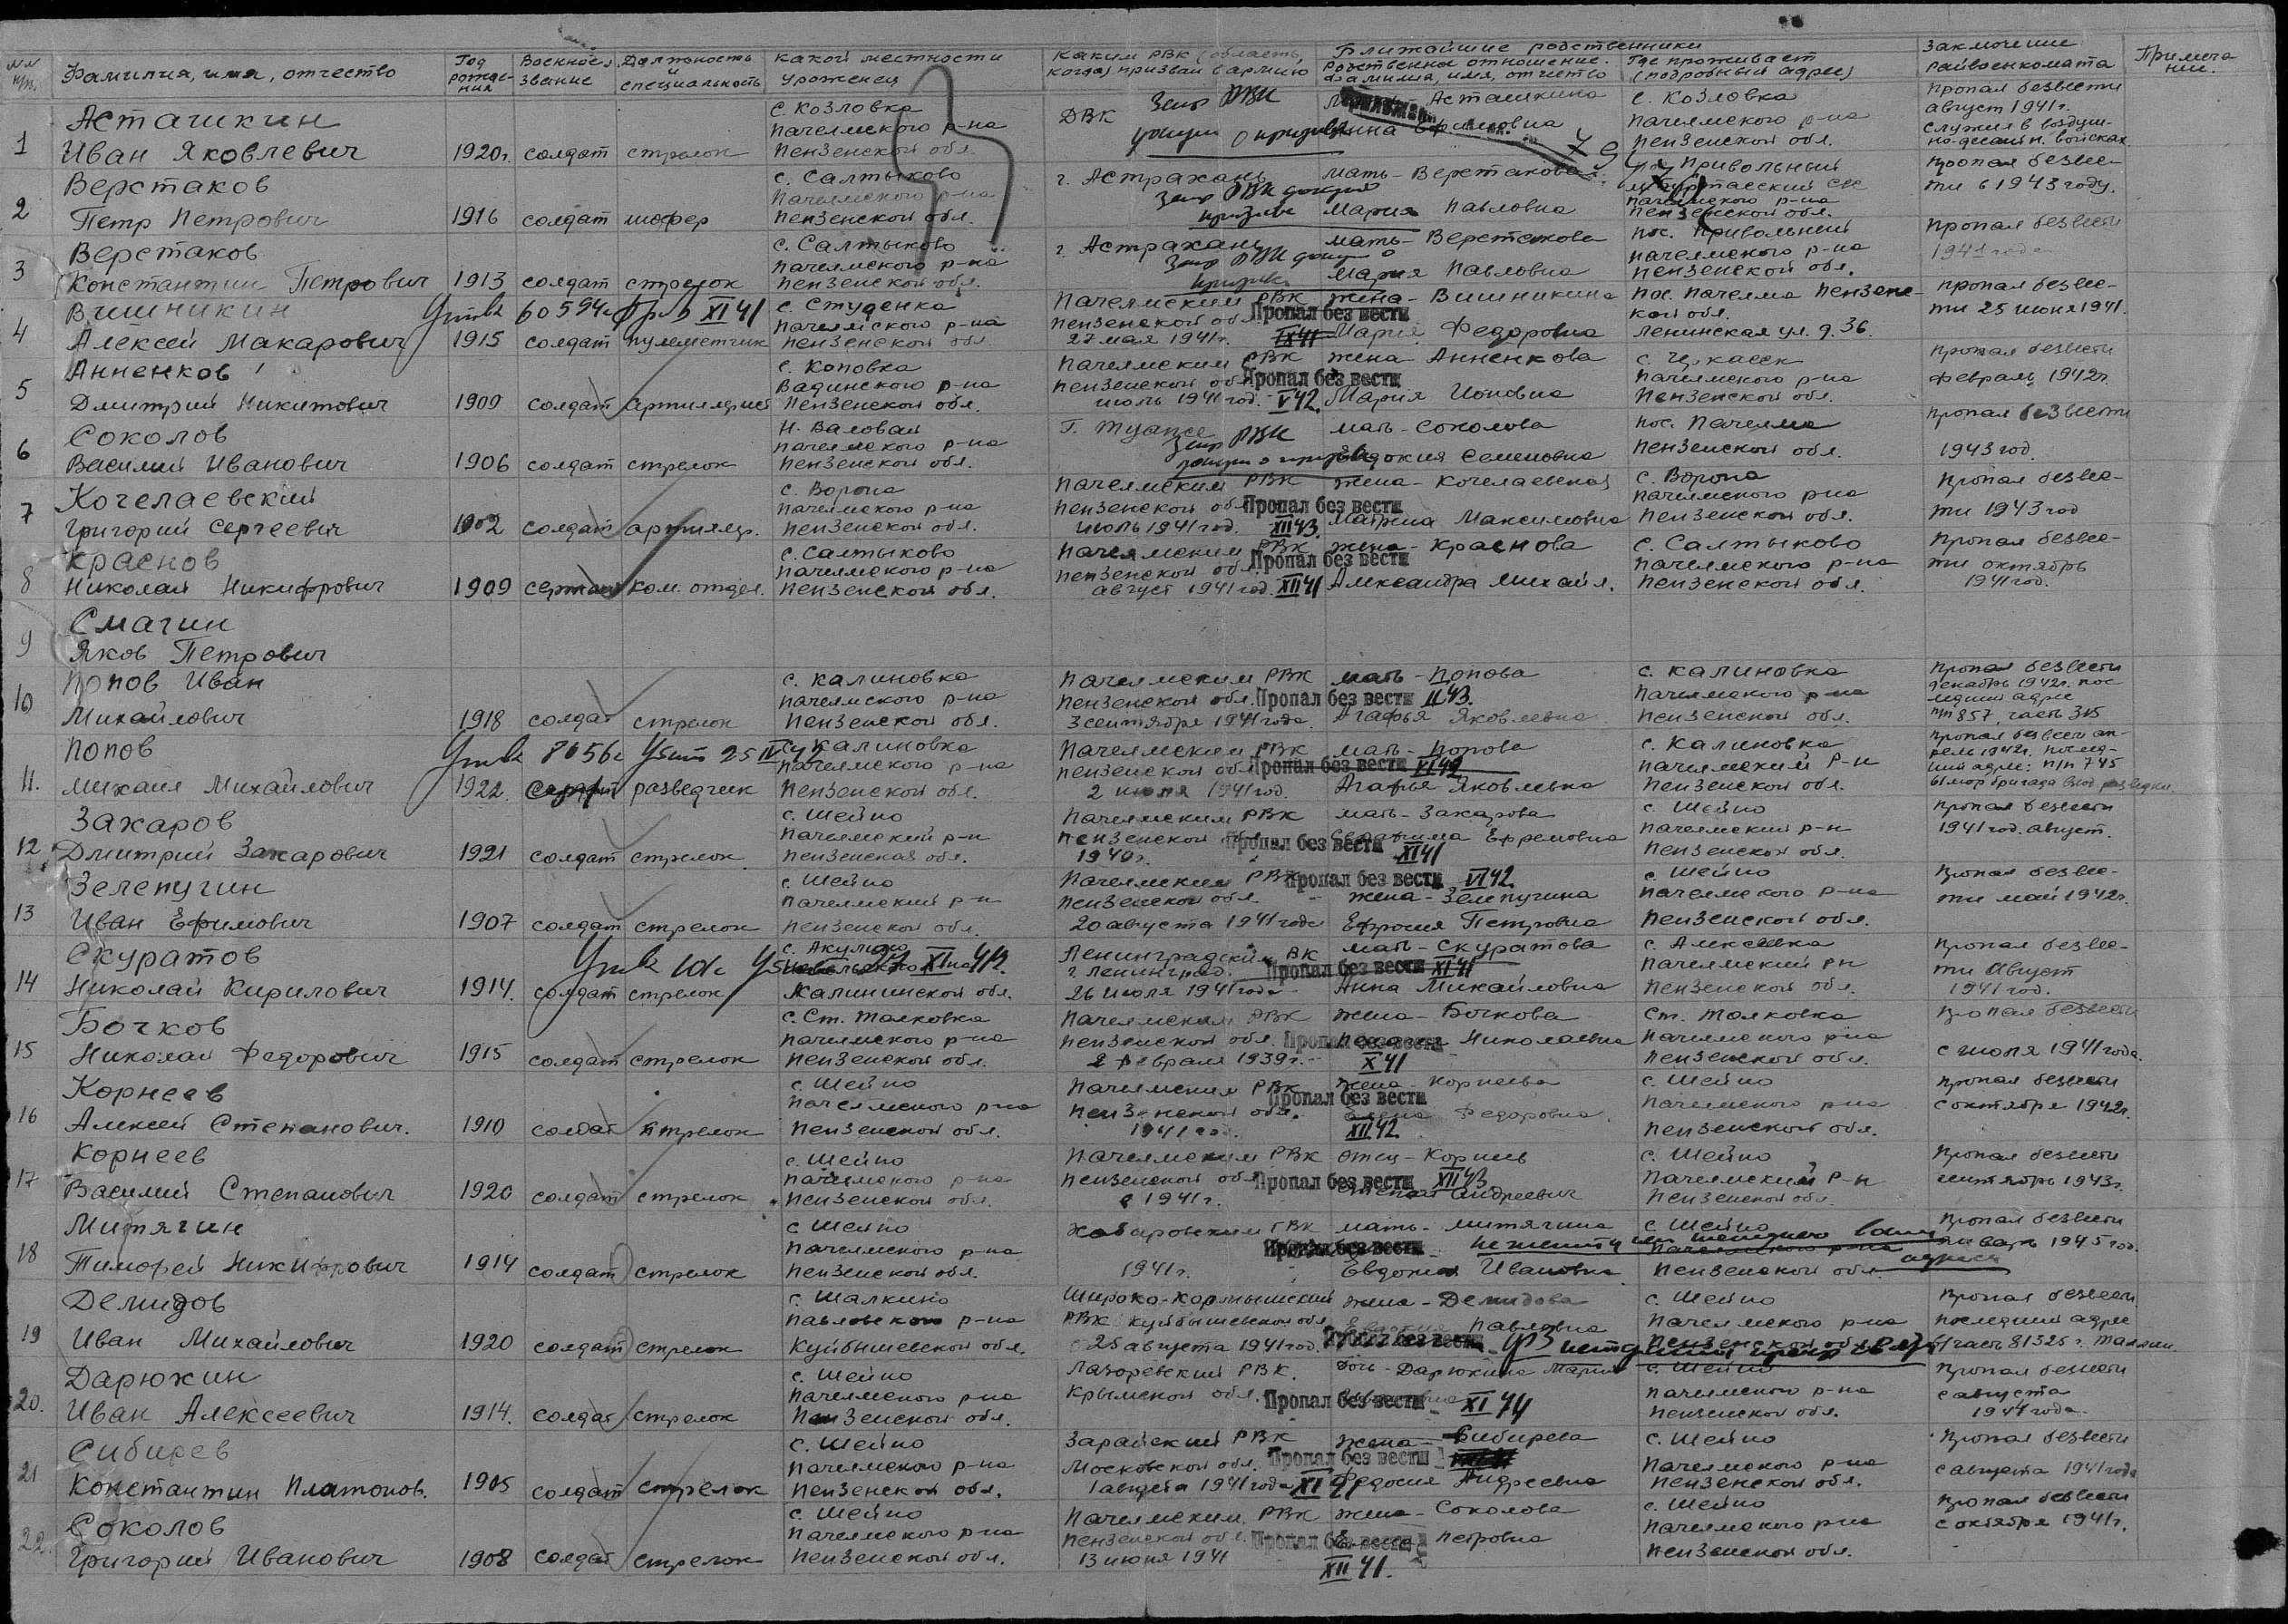 №№ п/п.
Фамилия, имя, отчество
Год рождения
Военное звание
Должность и специальность
Какой местности уроженец
Каким РВК (область, когда) призван в армию
Ближайшие родственники
Родственное отношение. Фамилия, имя, отчество
Где проживает (подробный адрес)
Заключение райвоенкомата
Примечание.
1 Асташкин
Иван Яковлевич 1920г. солдат стрелок
с. Козловка
Пачелмского р-на
Пензенской обл.
ДВК
Запр РВК
Асташкина
с. Козловка
Пачелмского р-на
Пензенской обл.
Пропал безвести
август 1941г.
служил в воздуш-
но-десант. войсках.
2 Верстаков
Петр Петрович 1916 солдат шофер
с. Салтыково
Пачелмского р-на
Пензенской обл.
г. Астрахань
Запр РВК
мать - Верстакова
Мария Павловна
Привольный
Пачелмского р-на
Пензенской обл.
Пропал безвес-
ти в 1943 году.
3 Верстаков
Константин Петрович 1913 солдат стрелок
с. Салтыково
Пачелмского р-на
Пензенской обл.
г. Астрахань
Запр РВК
мать - Верстакова
Мария Павловна
пос. Привольный
Пачелмского р-на
Пензенской обл.
Пропал безвести
1941 года
4 Вишникин
Алексей Макарович 1915 солдат пулеметчик
60594с XI 41
с. Студенка
Пачелмского р-на
Пензенской обл.
Пачелмским РВК
Пензенской обл.
27 мая 1941г.
Пропал без вести
IX 41
жена - Вишникина
Мария Федоровна
пос. Пачелма Пензенс-
кой обл.
Ленинская ул. д. 36.
Пропал безвес-
ти 25 июня 1941.
5 Анненков
Дмитрий Никитович 1909 солдат артиллерист
с. Коповка
Вадинского р-на
Пензенской обл.
Пачелмским РВК
Пензенской обл.
июль 1941 год.
Пропал без вести
V 42.
жена - Анненкова
Мария Ионовна
с. Черкасск
Пачелмского р-на
Пензенской обл.
Пропал безвести
февраль 1942г.
6 Соколов
Василий Иванович 1906 солдат стрелок
Н. Валовай
Пачелмского р-на
Пензенской обл.
г. Туапсе
Запр РВК
мать - Соколова
Евдокия Семеновна
пос. Пачелма
Пензенской обл.
Пропал безвести
1943 год.
7 Кочелаевский
Григорий Сергеевич 1902 солдат артиллер.
с. Ворона
Пачелмского р-на
Пензенской обл.
Пачелмским РВК
Пензенской обл.
июль 1941 год.
Пропал без вести
XII 43.
жена - Кочелаевская
Матрена Максимовна
с. Ворона
Пачелмского р-на
Пензенской обл.
Пропал безвес-
ти 1943 год
8 Краснов
Николай Никифрович 1909 сержант ком. отдел.
с. Салтыково
Пачелмского р-на
Пензенской обл.
Пачелмским РВК
Пензенской обл.
август 1941 год.
Пропал без вести
XII 41
жена - Краснова
Александра Михайл.
с. Салтыково
Пачелмского р-на
Пензенской обл.
Пропал безвес-
ти октябрь
1941 год.
9 Смагин
Яков Петрович
10 Попов Иван
Михайлович 1918 солдат стрелок
с. Калиновка
Пачелмского р-на
Пензенской обл.
Пачелмским РВК
Пензенской обл.
3 сентября 1941 года.
Пропал без вести II 43.
мать - Попова
Агафья Яковлевна
с. Калиновка
Пачелмского р-на
Пензенской обл.
Пропал безвести
декабрь 1942г. пос-
ледний адрес
пп 857, часть 315
11. Попов
Михаил Михайлович 1922. солдат разведчик
8056с Убит 25 IV 42
с. Калиновка
Пачелмского р-на
Пензенской обл.
Пачелмским РВК
Пензенской обл.
2 июля 1941 год.
Пропал без вести VI 42
мать - Попова
Агафья Яковлевна
с. Калиновка
Пачелмский р-н
Пензенской обл.
Пропал безвести ап-
рель 1942г. послед-
ний адрес: п/п 745
61 мор бригада взвод разведки
12 Захаров
Дмитрий Захарович 1921 солдат стрелок
с. Шейно
Пачелмский р-н
Пензенская обл.
Пачелмским РВК
Пензенской обл.
1940г.
Пропал без вести
XI 41
мать - Захарова
Серафима Ефремовна
с. Шейно
Пачелмский р-н
Пензенской обл.
Пропал безвести
1941 год. август.
13 Зелепугин
Иван Ефимович 1907 солдат стрелок
с. Шейно
Пачелмский р-н
Пензенской обл.
Пачелмским РВК
Пензенской обл.
20 августа 1941 года
Пропал без вести VI 42.
жена - Зелепугина
Ефросия Петровна
с. Шейно
Пачелмского р-на
Пензенской обл.
Пропал безвес-
ти май 1942г.
14 Скуратов
Николай Кирилович 1914. солдат стрелок
XI 42.
Калининской обл.
Ленинградским ВК
г. Ленинград.
26 июля 1941 года
Пропал без вести XI 41
мать - Скуратова
Анна Михайловна
с. Алексеевка
Пачелмский рн
Пензенской обл.
Пропал безвес-
ти Август
1941 год.
15 Бочков
Николай Федорович 1915 солдат стрелок
с. Ст. Толковка
Пачелмского р-на
Пензенской обл.
Пачелмским РВК
Пензенской обл.
2 февраля 1939г.
Пропал без вести
X 41
жена - Бочкова
Николаевна
Ст. Толковка
Пачелмского р-на
Пензенской обл.
Пропал безвести
с июля 1941 года.
16 Корнеев
Алексей Степанович. 1910 солдат стрелок
с. Шейно
Пачелмского р-на
Пензенской обл.
Пачелмским РВК
Пензенской обл.
1941 год.
Пропал без вести
XII 42
жена - Корнеева
Елена Федоровна
с. Шейно
Пачелмского р-на
Пензенской обл.
Пропал безвести
с октября 1942г.
17 Корнеев
Василий Степанович 1920 солдат стрелок
с. Шейно
Пачелмского р-на
Пензенской обл.
Пачелмским РВК
Пензенской обл.
с 1941г.
Пропал без вести XII 43
отец - Корнеев
Степан Андреевич
с. Шейно
Пачелмский р-н
Пензенской обл.
Пропал безвести
сентябрь 1943г.
18 Митягин
Тимофей Никифрович 1914 солдат стрелок
с Шейно
Пачелмского р-на
Пензенской обл.
Хабаровским ГВК
1941г.
Пропал без вести
мать - Митягина
Евдокия Ивановна
с Шейно
Пачелмского р-на
Пензенской обл.
Пропал безвести
январь 1945 год.
19 Демидов
Иван Михайлович 1920 солдат стрелок
с. Шалкино
Павловского р-на
Куйбышевской обл.
Широко-Кармышский
РВК Куйбышевской обл
25 августа 1941 год.
Пропал без вести
жена - Демидова
Павловна
с. Шейно
Пачелмского р-на
Пензенской обл.
Пропал безвести
последний адрес
в/часть 81325 г. Таллин.
20. Дарюхин
Иван Алексеевич 1914. солдат стрелок
с. Шейно
Пачелмского р-на
Пензенской обл.
Лазоревский РВК.
Крымской обл.
Пропал без вести XI 44
дочь - Дарюхина Мария
с. Шейно
Пачелмского р-на
Пензенской обл.
Пропал безвести
с августа
1944 года.
21 Сибирев
Константин Платонов. 1905 солдат стрелок
с. Шейно
Пачелмского р-на
Пензенской обл.
Зарайский РВК
Московской обл.
1 августа 1941 года
Пропал без вести
XI 41
жена - Сибирева
Федосия Андреевна
с. Шейно
Пачелмского р-на
Пензенской обл.
Пропал безвести
с августа 1941 года
22. Соколов
Григорий Иванович 1908 солдат стрелок
с. Шейно
Пачелмского р-на
Пензенской обл.
Пачелмским РВК
Пензенской обл.
13 июня 1941
Пропал без вести
XII 41.
жена - Соколова
Петровна
с. Шейно
Пачелмского р-на
Пензенской обл.
Пропал безвести
с октября 1941г.